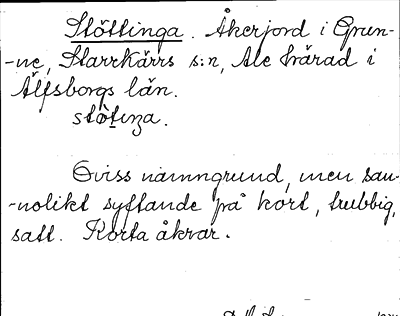 Stöttinga. Åkerjord i Grun-
-ne, Starrkärrs s:n, Ale härad i
Älfsborgs län.
stötinga.
Oviss namngrund, men san-
-nolikt syftande på kort, trubbig,
satt. Korta åkrar.